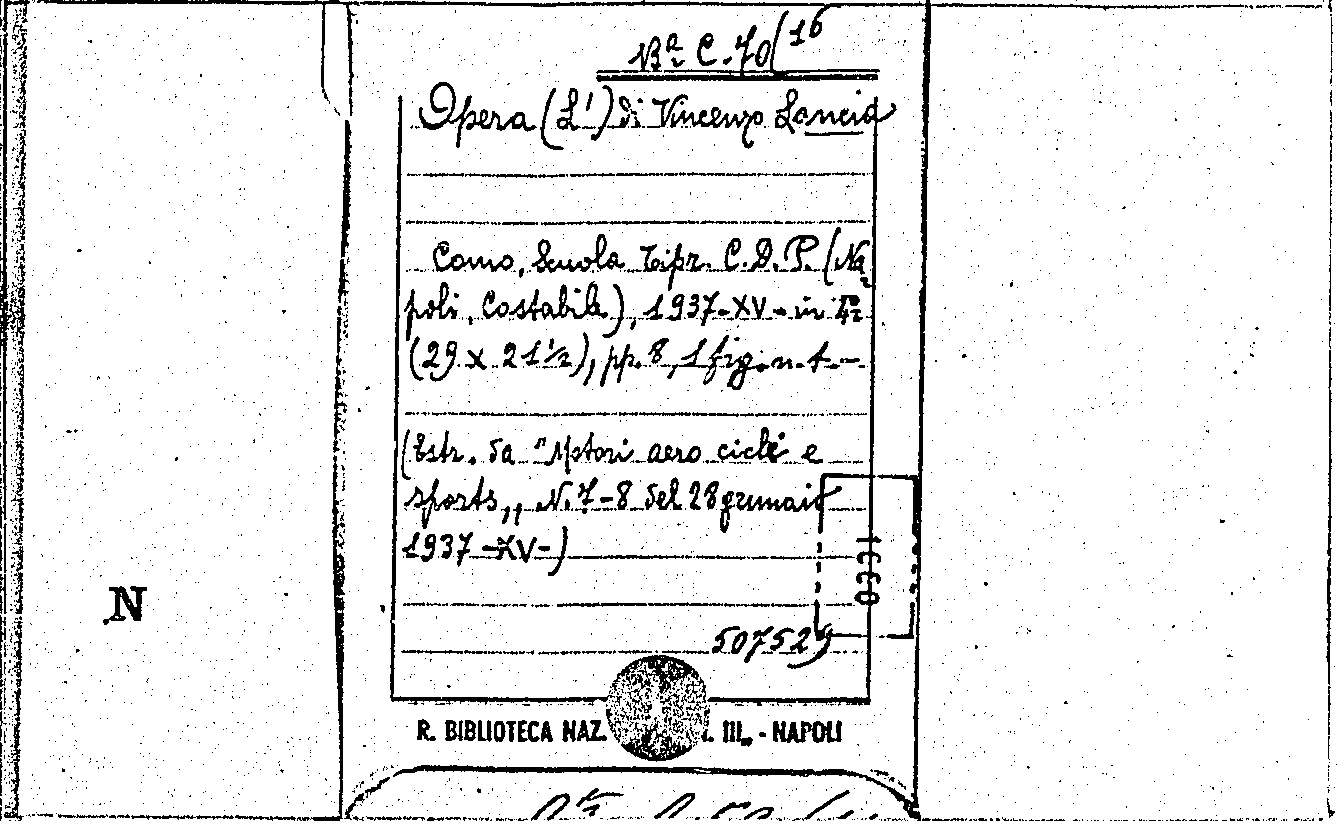 Bª C. 70/16
Opera (L') di Vincenzo Lancia
Como, Scuola Tipr. C.D.P. (Na
poli, Costabile), 1937-XV- in 4º
(29 x 21 1/2), pp. 8, 1 fig. n. t. -
(Estr. da "Motori aero cicli e
sports,, N. 7-8 del 28 gennaio
1937-XV-)
507529
1660
N
R. BIBLIOTECA NAZ. . III. - NAPOLI